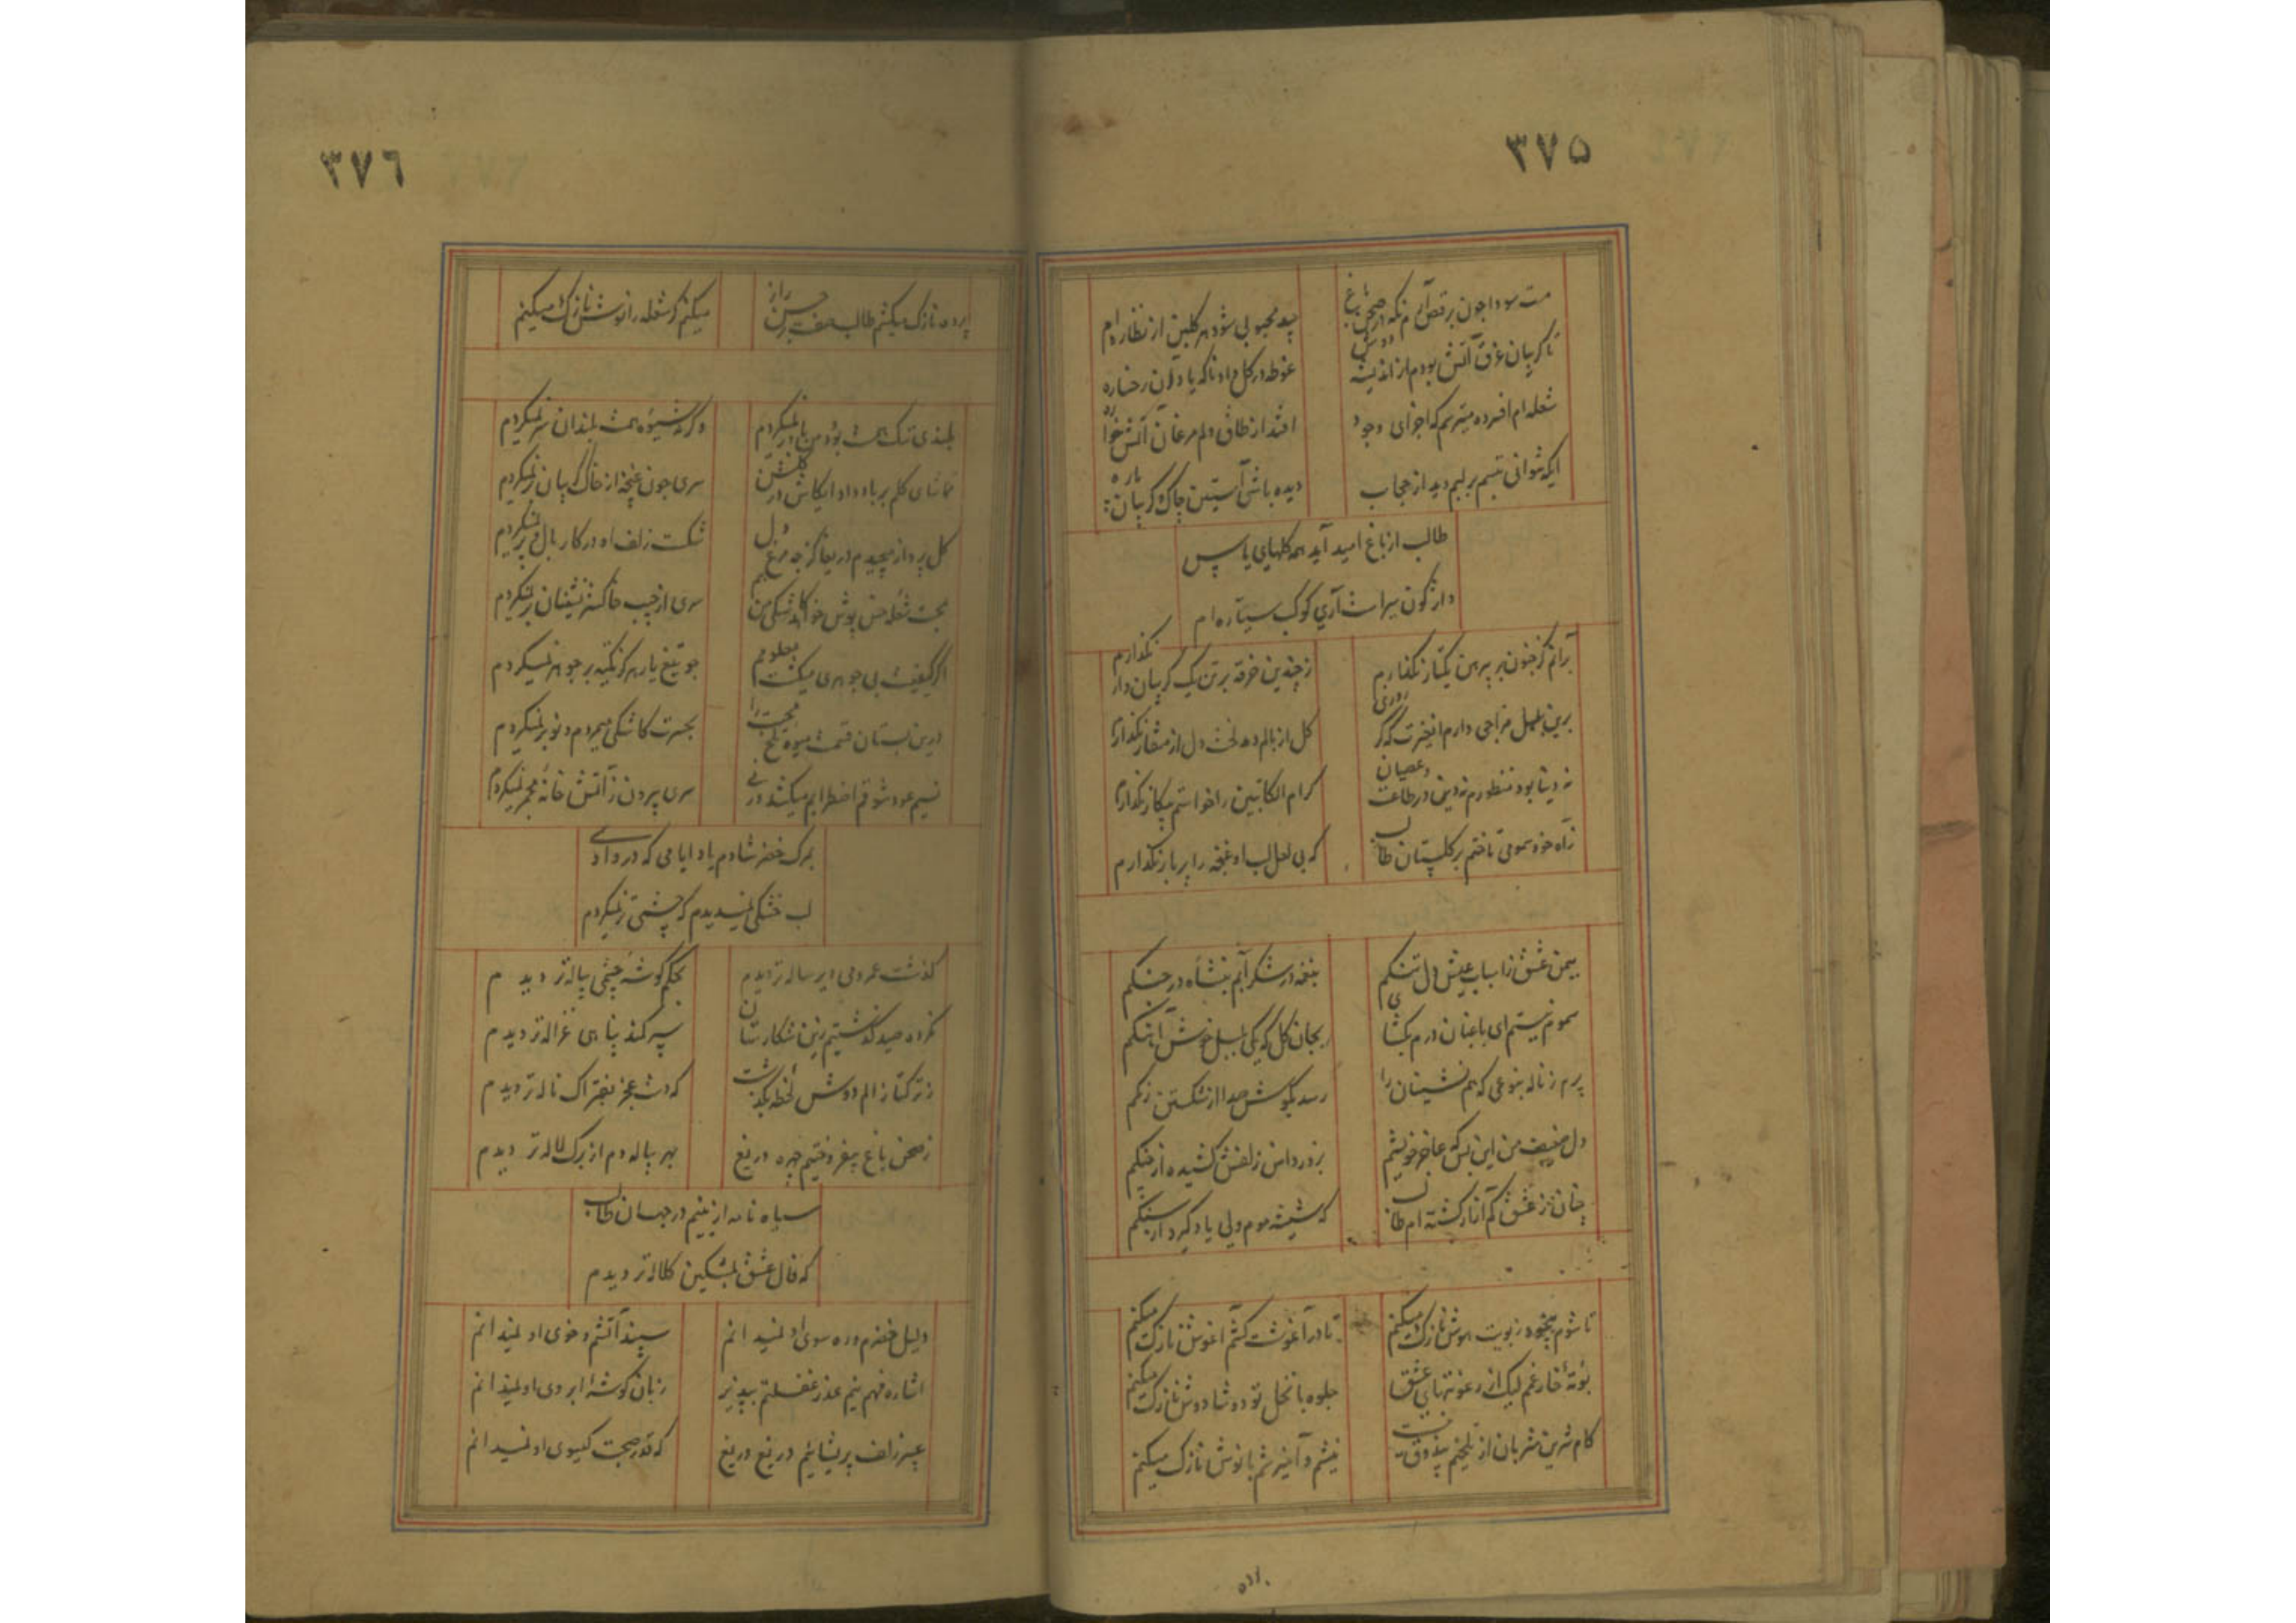 ٣٧٥
مست سودا چون برقص آیم که در صحن باغ
بید مجنونی شود هر گلبن از نظاره ام
تا گریبان غرق آتش بودم از اندیشه دوش
غوطه در گل داد ناگه یاد آن رخساره
شعله ام افسرده میترسم که اجزای وجود
افتد از طاق دلم مرغان آتش خواره
ایکه نتوانی تبسم بر لبم دید از حجاب
دیده باشی آستین چاک گریبان پاره
طالب از باغ امید آید همه گلهای یاس
واژگون سیر است آری کوکب سیاره ام
برانم کز جنون بر پیرهن یکتار نگذارم
ز چندین خرقه بر تن یک گریبان دار نگذارم
برین بلبل مزاجی دارم آن غیرت که گر روزی
گل از بالم دمد لخت دل از منقار نگذارم
نه دنیا بود منظورم نه دین در طاعت و عصیان
کرام الکاتبین را خواستم بیکار نگذارم
ز آه خود سمومی تاختم بر گلستان طالب
که بی لعل لب او غنچه را پربار نگذارم
بیمن عشق ز اسباب عیش دل تنگم
بنغمه در شکرآبم بنشاه در جنگم
سموم نیستم ای باغبان درم بگشای
بجان گل که یکی بلبل خوش آهنگم
پرم ز ناله بنوعی که هم نشینان را
رسد بگوش صدا از شکستن رنگم
دل ضعیف من این بس که عاجز خویشم
بزور دامن زلفش کشیده از چنگم
چنان ز عشق کم آزار گشته ام طالب
که شیشه موم ولی یاد گیرد از سنگم
تا شوم بیخود ز بویت هوش نازک میکنم
تا در آغوشت کشم آغوش نازک میکنم
بوتهٔ خار غمم لیک از رعونتهای عشق
جلوه با نخل تو دوشادوش نازک میکنم
کام شیرین مشربان از تلخیم بیذوق نیست
نیشم و آمیزشم با نوش نازک میکنم
٣٧٦
پرده نازک میکنم طالب
میکنم گر شعله را خس پوش نازک میکنم
بلندی ننگ همت بود من باور نمیکردم
وگرنه شیوهٔ همت بلندان سر نمیکردم
تماشای گلم بر باد داد ایکاش در گلشن
سری چون غنچه از خاک گریبان بر نمیکردم
گل پرواز میچیدم دریغا گر چو مرغ دل
شکست زلف او در کار بال و پر نمیکردم
محبت شعلهٔ خس پوش خواهد کاشکی من هم
سری از جیب خاکستر نشینان بر نمیکردم
اگر کیفیت بی جوهری میگشت معلومم
چو تیغ یار هرگز تکیه بر جوهر نمیکردم
درین بستان قسمت میوه تلخ محبت را
بحسرت کاشکی میمردم و نوبر نمیکردم
نسیم عود شوقم اضطرابم میکشد ورنی
سری بیرون ز آتش خانهٔ مجمر نمیکردم
بمرگ خضر شادم یاد ایامی که در وادی
لب خشکی نمیدیدم که چشمی تر نمیکردم
گذشت عمر و می دیرساله تر دیدم
بحکم گوشهٔ چشمی پیاله تر دیدم
نکرده صید گذشتیم زین شکارستان
سپر کمند پناهی غزاله تر دیدم
ز ترکتاز الم دوش لحظه بگذشت
که دست عجز بفتراک ناله تر دیدم
ز صحن باغ بیفروختیم چهره دریغ
بهر پیاله دم از برگ لاله تر دیدم
سیاه نامه تر از بینیم در جهان طالب
که فال عشق بمشکین کلاله تر دیدم
دلیل خضرم و ره سوی او نمیدانم
سپند آتشم و خوی او نمیدانم
اشاره فهم نیم عذر غفلتم بپذیر
زبان گوشهٔ ابروی او نمیدانم
عبیر زلف پریشانیم دریغ دریغ
که قدر صحبت گیسوی او نمیدانم